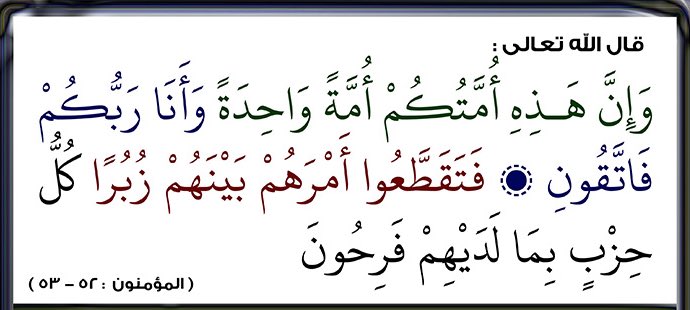 قال الله تعالى :
وَإِنَّ هَـٰذِهِ أُمَّتُكُمْ أُمَّةً وَاحِدَةً وَأَنَا رَبُّكُمْ
فَاتَّقُونِ فَتَقَطَّعُوا أَمْرَهُمْ بَيْنَهُمْ زُبُرًا كُلُّ
حِزْبٍ بِمَا لَدَيْهِمْ فَرِحُونَ
( المؤمنون : ٥٢ - ٥٣ )